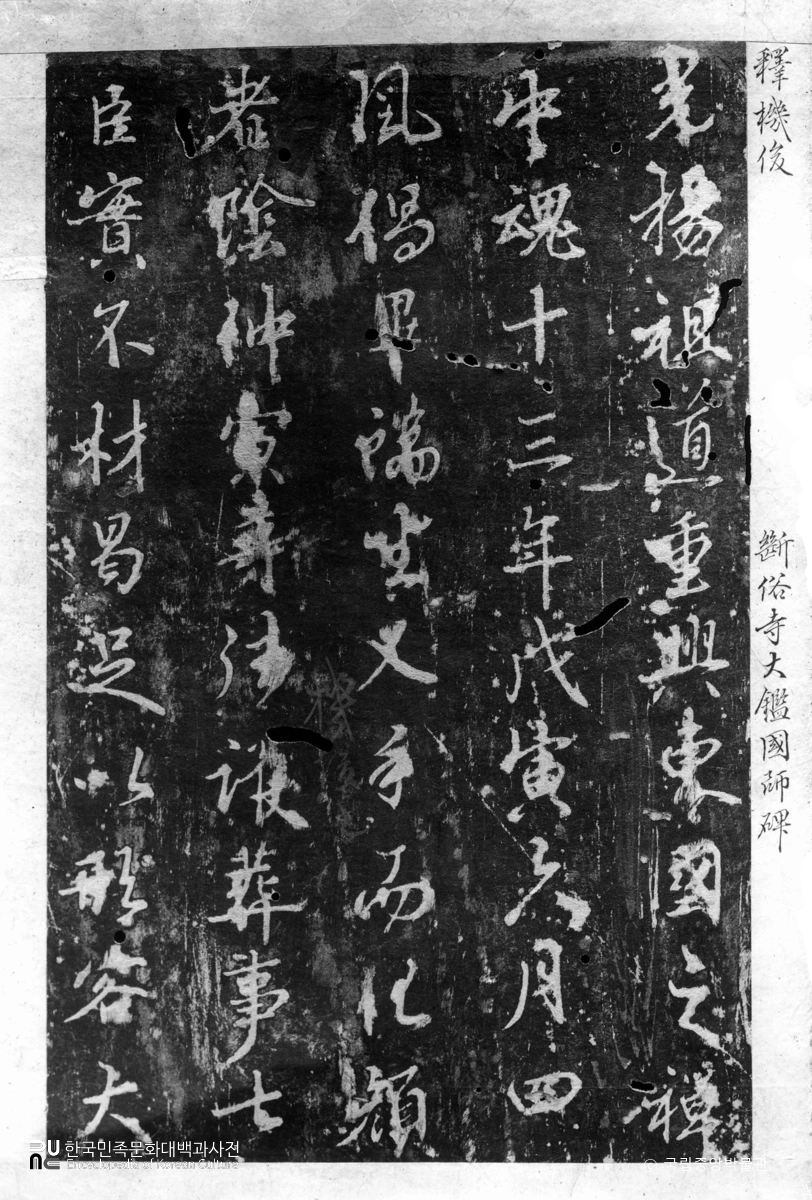 釋機俊 斷俗寺大鑑國師碑
光揚祖道重興東國之禪
中魂十三年戊寅六月四
風偈畢端坐叉手而化頹
者陰神寅奉法 葬事士
臣實不材曷足以形容大
한국민족문화대백과사전
Encyclopedia of Korean Culture
국립중앙박물관